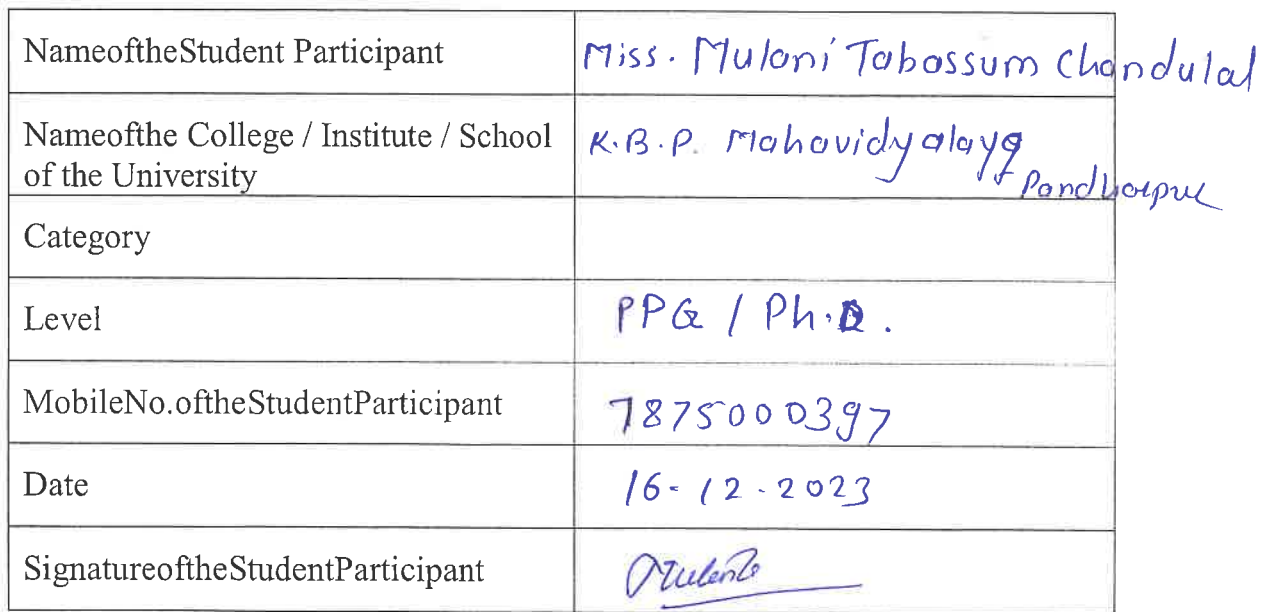 NameoftheStudent Participant Miss. Mulani Tabassum Chandulal
Nameofthe College / Institute / School K.B.P. Mahavidyalaya
of the University Pandharpur
Category
Level PPG / Ph.D.
MobileNo.oftheStudentParticipant 7875000397
Date 16-12-2023
SignatureoftheStudentParticipant